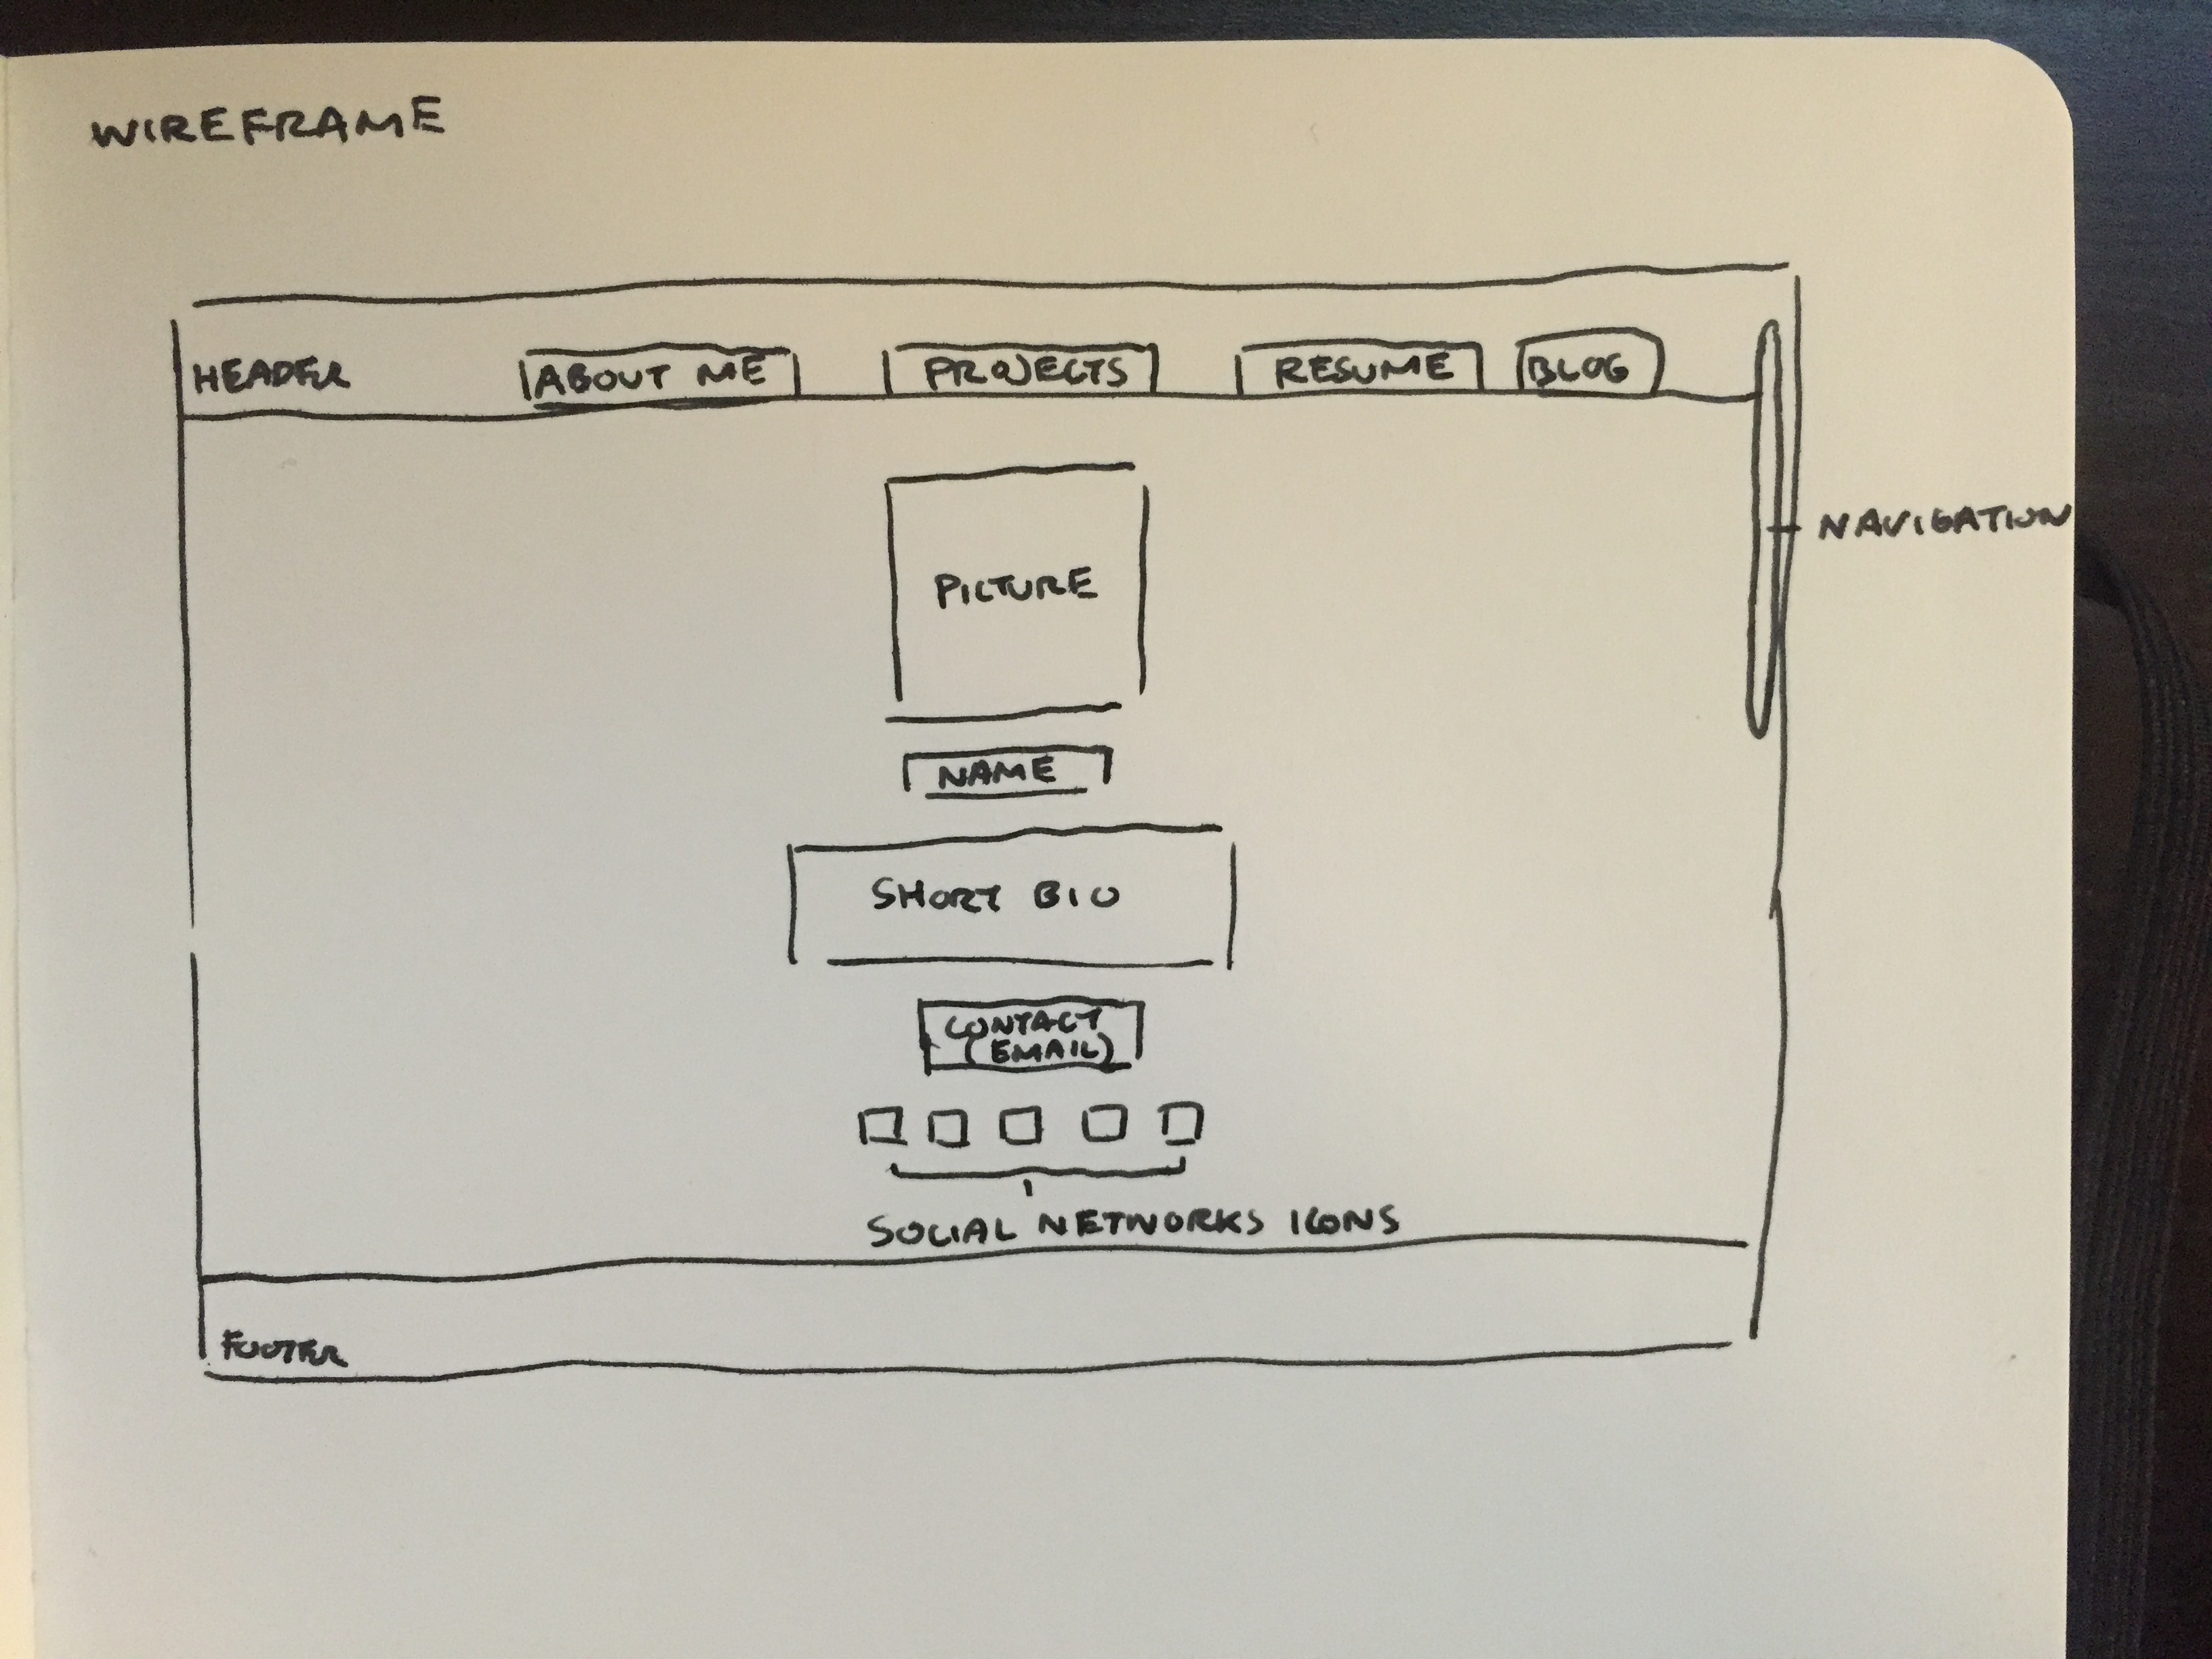 WIREFRAME
HEADER
ABOUT ME
PROJECTS
RESUME
BLOG
NAVIGATION
PICTURE
NAME
SHORT BIO
CONTACT
(EMAIL)
SOCIAL NETWORKS ICONS
FOOTER